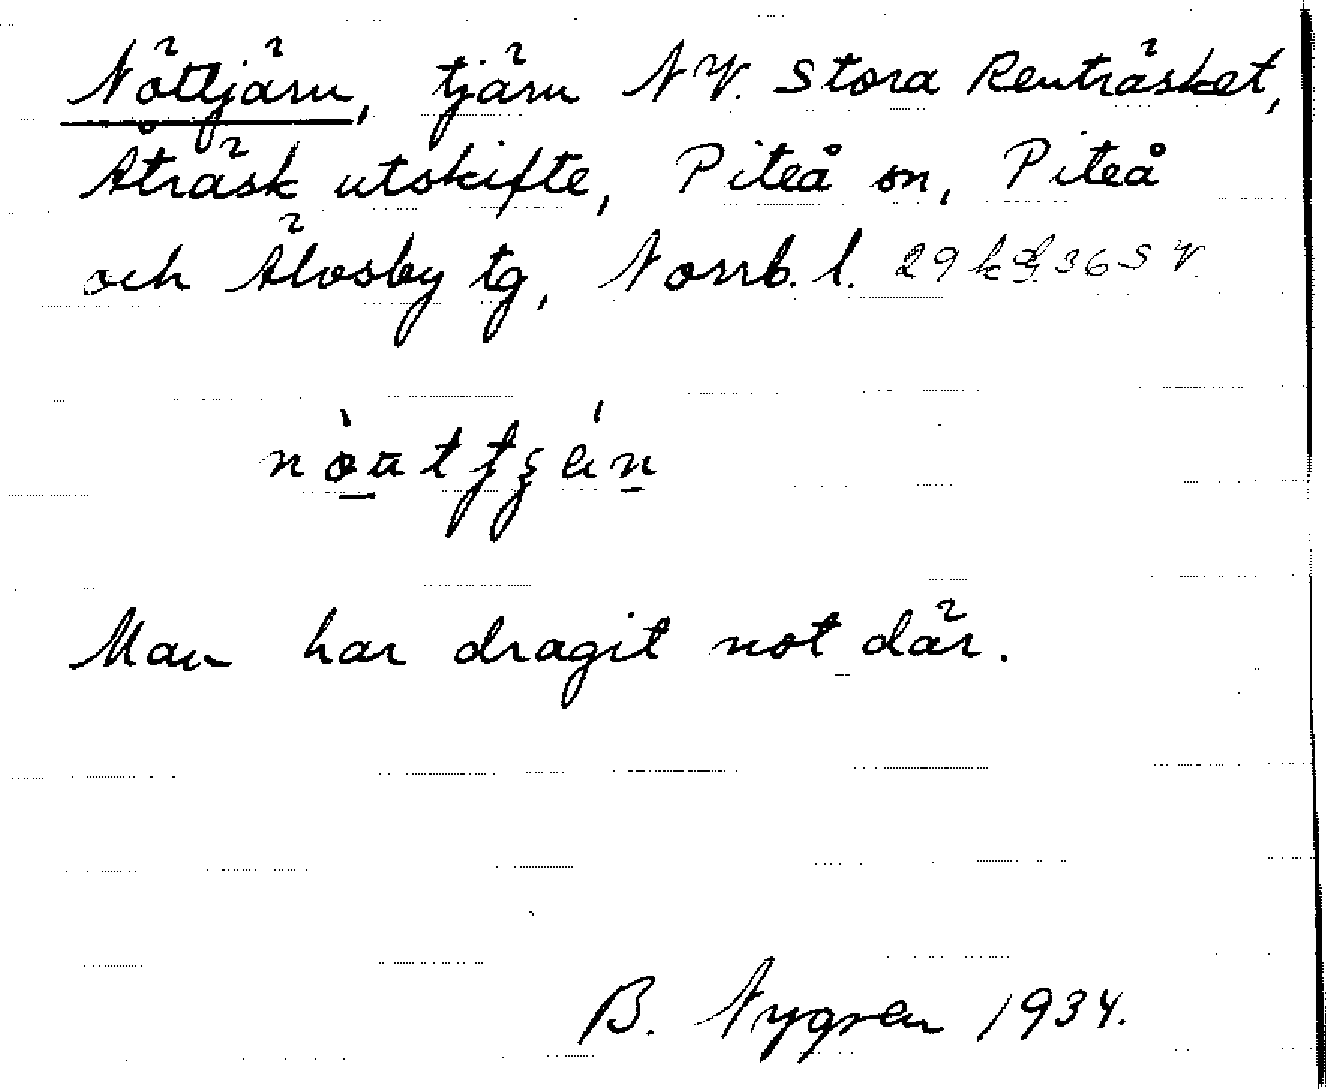 Nöttjärn, tjärn NV. Stora Renträsket,
Åträsk utskifte, Piteå sn, Piteå
och Älvsby tg, Norrb. l. 29 k g 36 SV.
Man har dragit not där.
B. Nygren 1934.